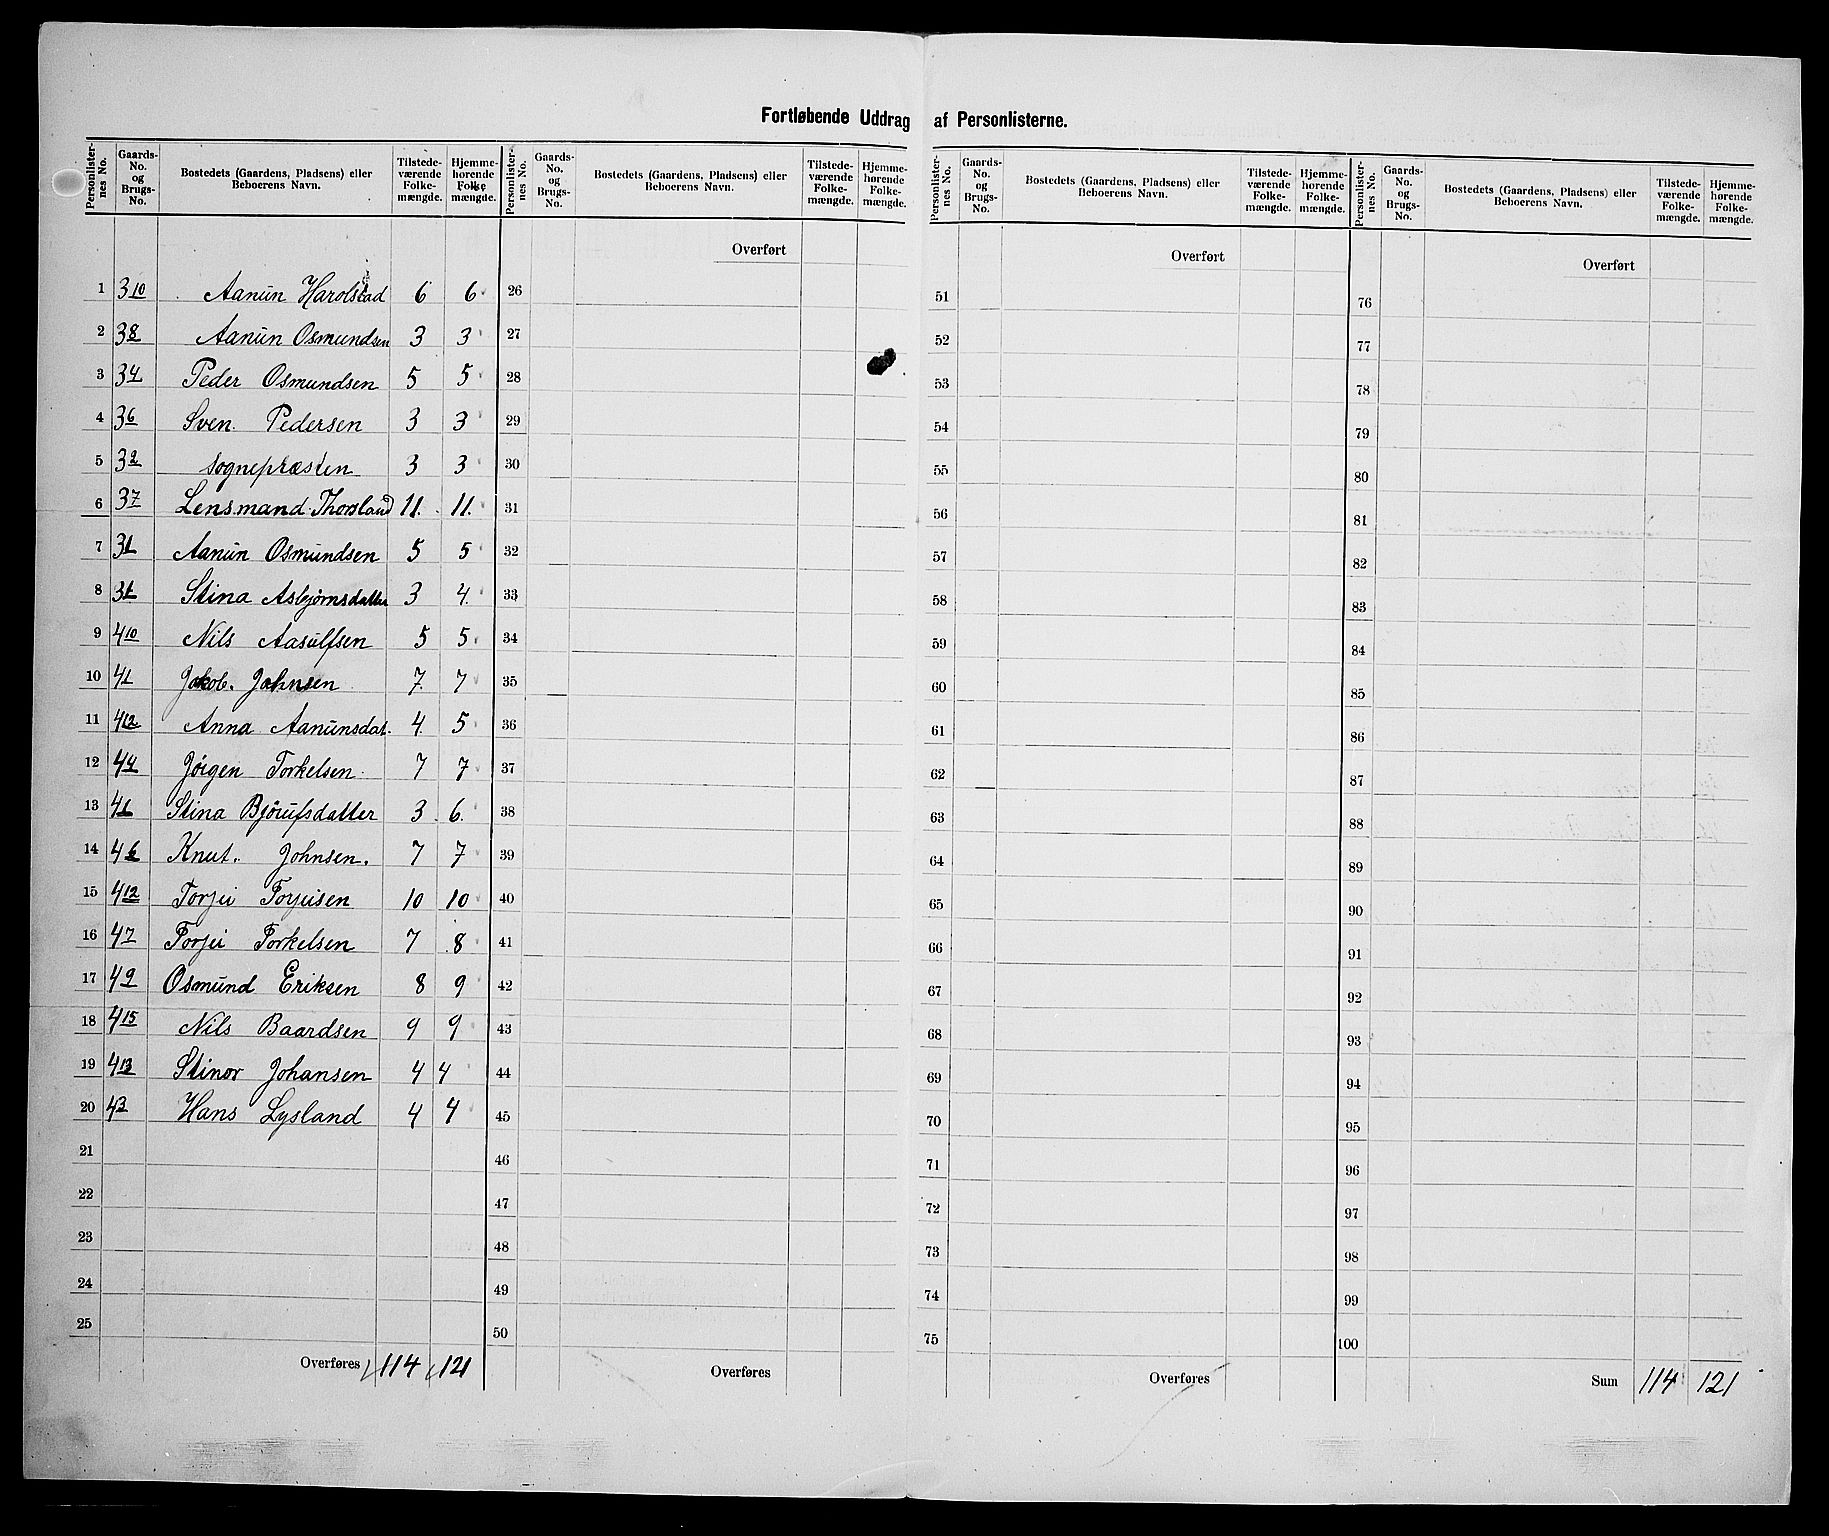 Fortløbende Uddrag af Personlisterne.
Personlister-nes No. Gaards-No. og Brugs-No. Bostedets (Gaardens, Pladsens) eller Beboerens Navn. Tilstede-værende Folke-mængde. Hjemme-hørende Folke-mængde. Personlister-nes No. Gaards-No. og Brugs-No. Bostedets (Gaardens, Pladsens) eller Beboerens Navn. Tilstede-værende Folke-mængde. Hjemme-hørende Folke-mængde. Personlister-nes No. Gaards-No. og Brugs-No. Bostedets (Gaardens, Pladsens) eller Beboerens Navn. Tilstede-værende Folke-mængde. Hjemme-hørende Folke-mængde. Personlister-nes No. Gaards-No. og Brugs-No. Bostedets (Gaardens, Pladsens) eller Beboerens Navn. Tilstede-værende Folke-mængde. Hjemme-hørende Folke-mængde.
Overført Overført Overført
1 3 10 Aanun Harolstad 6 6 26 51 76
2 3 8 Aanun Osmundsen 3 3 27 52 77
3 3 4 Peder Osmundsen 5 5 28 53 78
4 3 6 Sven Pedersen 3 3 29 54 79
5 3 2 Sognepræsten 3 3 30 55 80
6 3 7 Lensmand Thorsland 11. 11. 31 56 81
7 3 1 Aanun Osmundsen 5 5 32 57 82
8 3 1 Stina Asbjørnsdatter 3 4. 33 58 83
9 4 10 Nils Aasulfsen 5 5 34 59 84
10 4 1 Jakob. Johnsen 7. 7 35 60 85
11 4 12 Anna Aanunsdat. 4. 5 36 61 86
12 4 4 Jörgen Torkelsen 7 7 37 62 87
13 4 1 Stina Bjørufsdatter 3. 6. 38 63 88
14 4 6 Knut. Johnsen. 7 7 39 64 89
15 4 12 Torjei Torjeisen 10 10 40 65 90
16 4 7 Torjei Torkelsen 7 8 41 66 91
17 4 9 Osmund Eriksen 8 9 42 67 92
18 4 15 Nils Baardsen 9 9 43 68 93
19 4 13 Stinor Johansen 4 4 44 69 94
20 4 3 Hans Lysland 4 4 45 70 95
21 46 71 96
22 47 72 97
23 48 73 98
24 49 74 99
25 50 75 100
Overføres 114 121 Overføres Overføres Sum 114 121